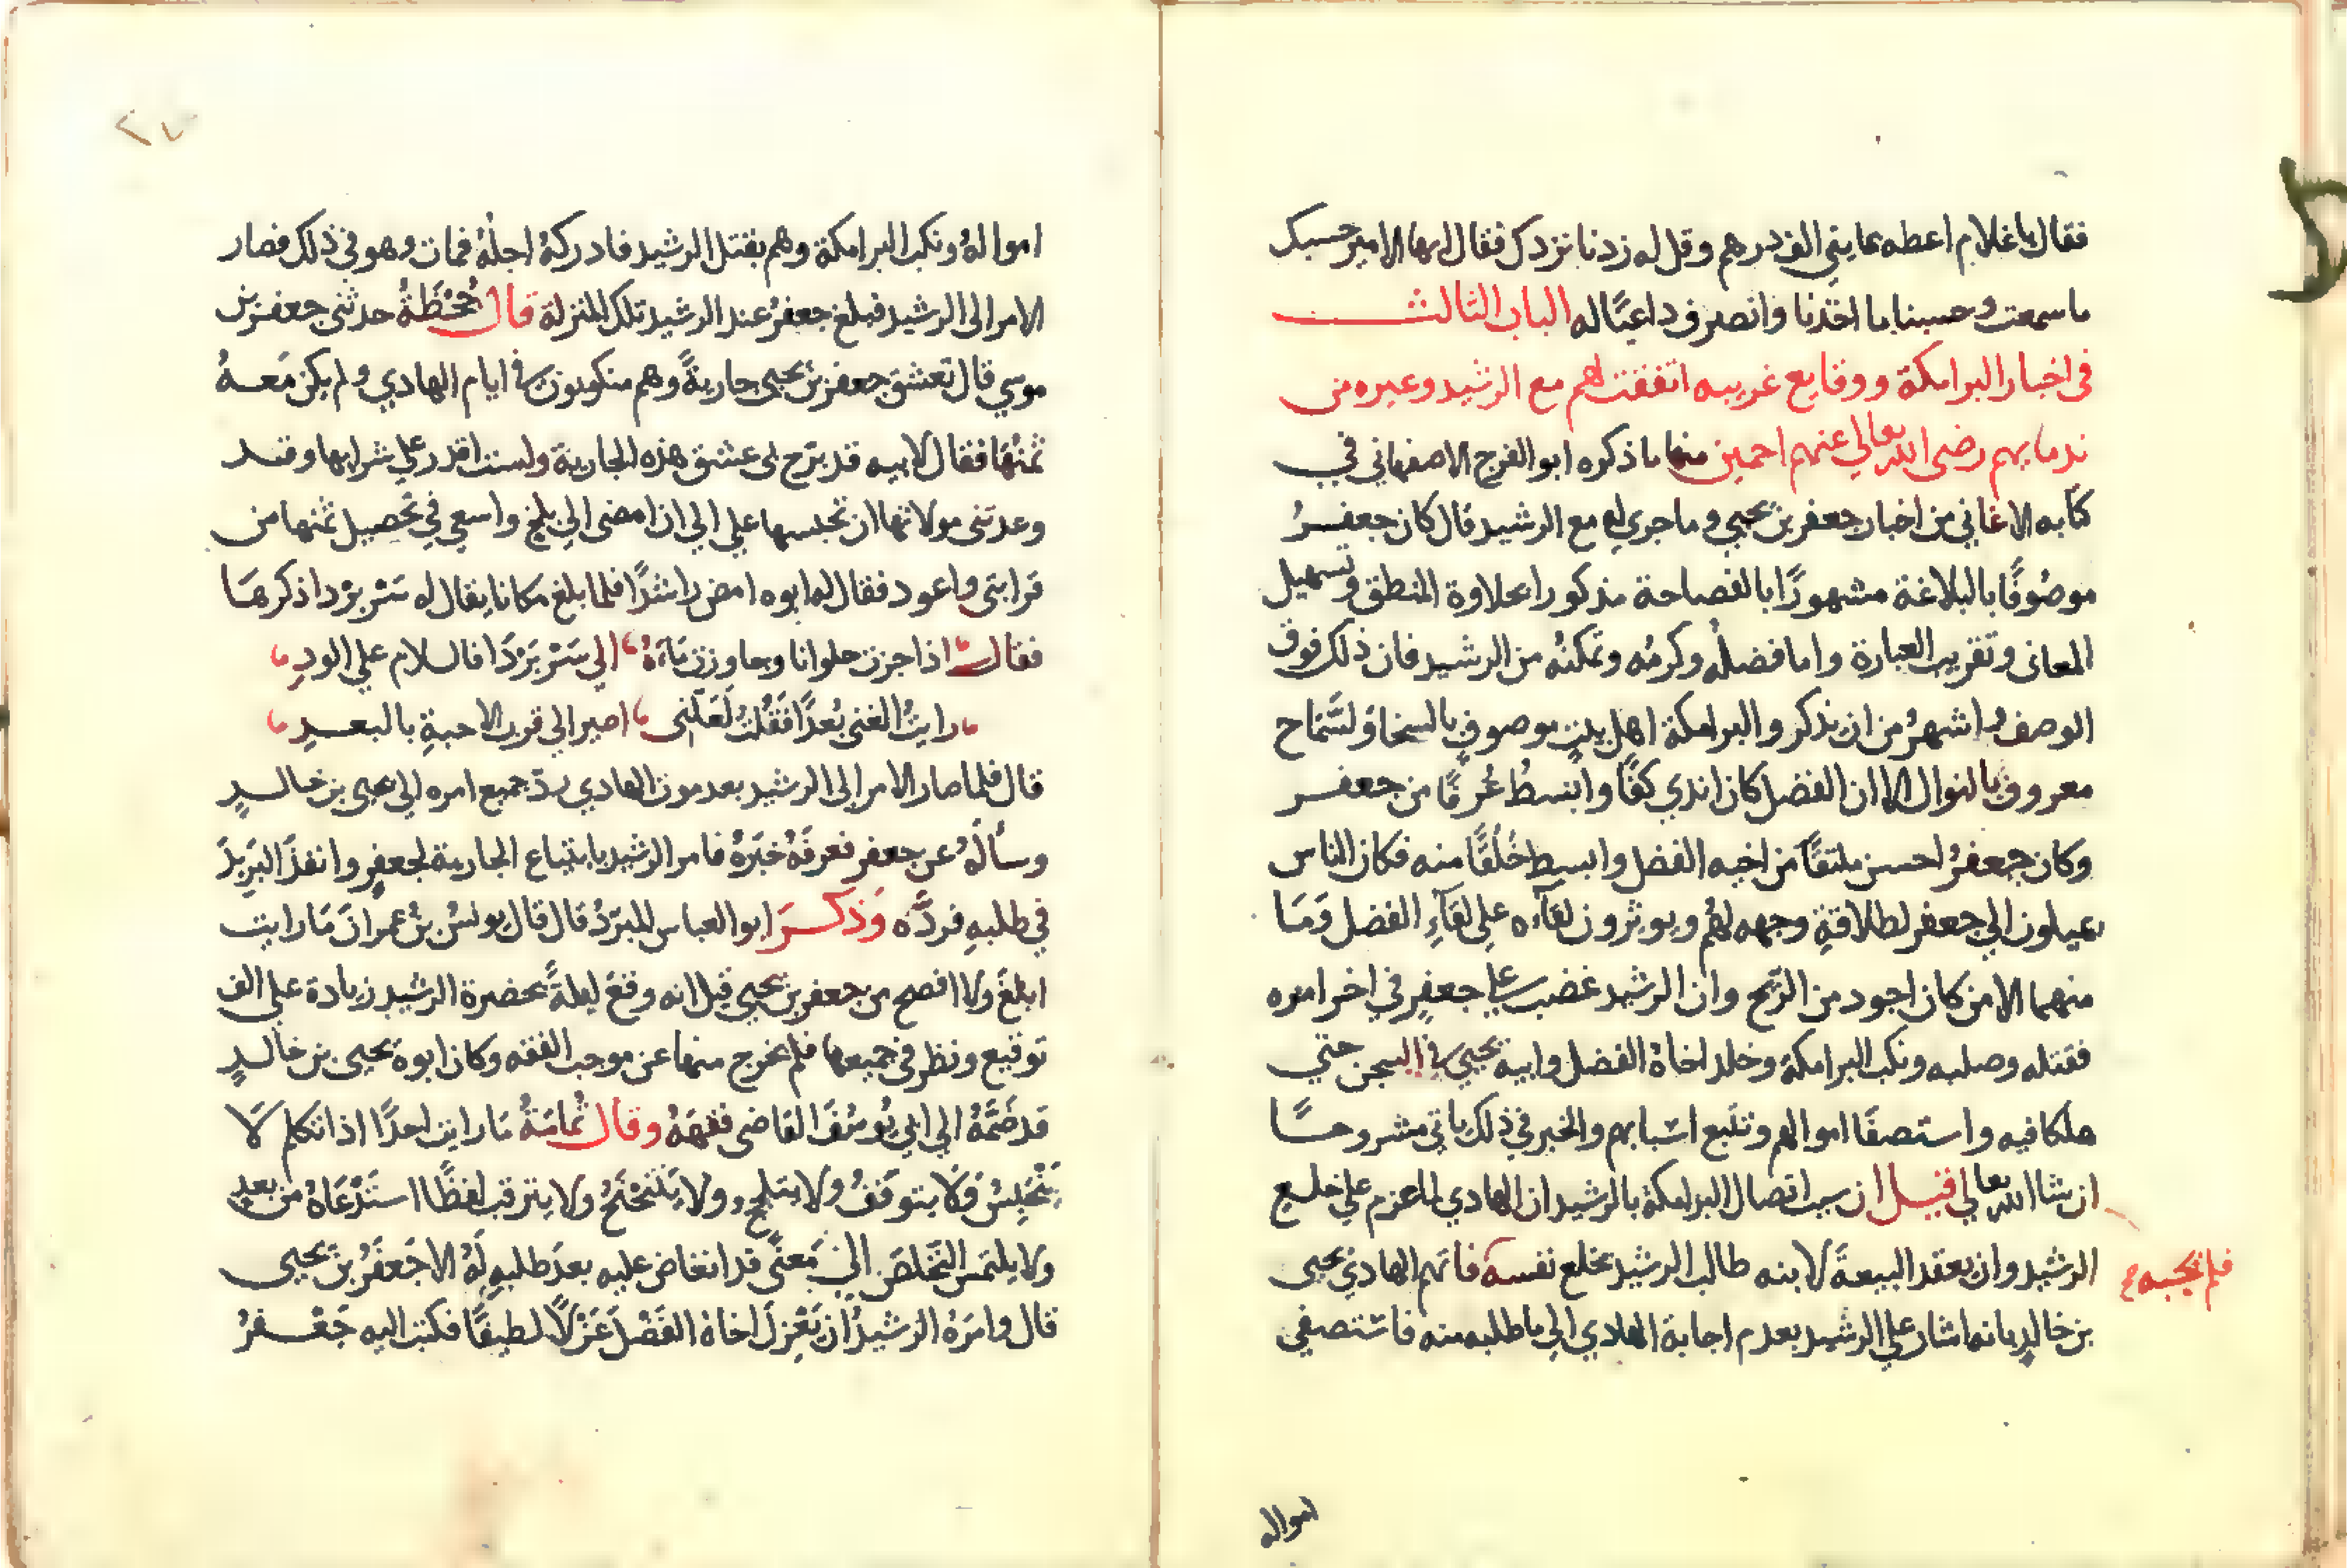 فقال يا غلام اعطه مايتي الف درهم وقل له زدنا نزدك فقال ايها الامير حسبك
ما سمعت وحسبنا ما اخذنا وانصرف داعيًا له الباب الثالث
في اخبار البرامكة ووقايع غريبه اتفقت لهم مع الرشيد وغيره من
ندمايهم رضي الله تعالي عنهم اجمعين منها ما ذكره ابو الفرج الاصفهاني في
كتابه الاغاني من اخبار جعفر بن يحيي وما جري له مع الرشيد قال كان جعفرُ
موصُوفًا بالبلاغة مشهورًا بالفصاحة مذكورا بحلاوة المنطق وتسهيل
المعاني وتقريب العبارة واما فضلُه وكرمُه وتمكنُه من الرشيد فان ذلك فوق
الوصف واشهرُ من ان يذكر والبرامكة اهل بيتٍ موصوفٍ بالسخا والسَّماح
معروفٍ بالنوال الا ان الفضل كان اندي كفًا وابسطُ عُرفًا من جعفر
وكان جعفرُ احسن ملتقًا من اخيه الفضل وابسط خُلُقًا منه فكان الناس
يميلون الي جعفر لطلاقةِ وجهه لهُم ويوثرون لقآءه علي لقآءِ الفضل وَمَا
منهما الا من كان اجود من الرّيح وان الرشيد غضب علي جعفرٍ في اخر امره
فقتله وصلبه ونكب البرامكة وخلد اخاهُ الفضل وابيه يحيي في السجن حتي
هلكا فيه واستصفَا اموالهم وتتبع اسبابهم والخبر في ذلك ياتي مشروحًا
ان شا الله تعالي قيل ان سبب اتصال البرامكة بالرشيد ان الهادي لما عزم علي خلع
الرشيد وان يعقد البيعةَ لابنه طالب الرشيد بخلع نفسه فاتهم الهادي يحيي
فلم يجبه صح
بن خالدٍ بانه اشار علي الرشيد بعدم اجابة الهادي الي ما طلبه منه فاستصفي
امواله
٢٧
اموالهُ ونكب البرامكة وهم بقتل الرشيد فادركهُ اجلهُ فمات وهو في ذلك فصار
الامر الي الرشيد فبلغ جعفرُ عند الرشيد تلك المنزلة قال جُحْظَةُ حدثني جعفر بن
موسي قال تعشق جعفر بن يحيي جاريةً وهم منكوبون في ايام الهادي ولم يكن مَعهُ
ثمنُها فقال لابيه قد برّح بي عشق هذه الجارية ولست اقدر علي شرايها وقد
وعدتني مولاتها ان تحبسها علي الي ان امضي الي بلخ واسعي في تحصيل ثمنها من
قرابتي واعود فقال له ابوه امض راشدًا فلما بلغ مكانا يقال له سَرْ بَرْد اذكرهَا
فقال اذا جزت حلوانا وجاوزت مَآءَهُ الي سَرْ بَرْدَا فالسلام علي الودِ
رايتُ الغني بُعدًا فَقُلْتُ لَعَلّني اصير الي قرب الاحبةِ بالبعدِ
قال فلما صار الامر الي الرشيد بعد موت الهادي ردّ جميع امره الي يحيي بن خالدٍ
وسألهُ عن جعفر فعرفَهُ خبَرهُ فامر الرشيد بابتياع الجارية لجعفرٍ وانفذَ البَريدَ
في طلبهِ فردَّه وَذكرَ ابو العباس المبرّدُ قال قال يونسُ بنُ عمرانَ مَا رايت
ابلغَ ولا افصح من جعفر بن يحيي قيل انه وقعَ ليلةً بحضرة الرشيد زيادة علي الف
توقيع ونظر في جميعها فلم يخرج منها عن موجب الفقه وكان ابوه يحيي بن خالدٍ
قد ضَمَّهُ الي ابي يُوسُفَ القَاضي ففقهَهُ وقال ثُمامَةُ مَا رايت احدًا اذا تكلم لَا
يَتَحَبسُ وَلَا يتوقفُ ولا يتلجلج ولا يَتَنَحْنَحُ ولا يترقب لفظًا استَدْعَاهُ من بعدٍ
ولا يلتمس التخلصَ الي مَعنًي قد انغاض عليه بعدَ طلبهِ لَهُ الا جَعفَرُ بنَ يحيي
قال وامرَهُ الرشيدُ ان يَعْزِلَ اخاهُ الفَضْلَ عَزْلًا لطيفًا فكتب اليه جَعْفرُ